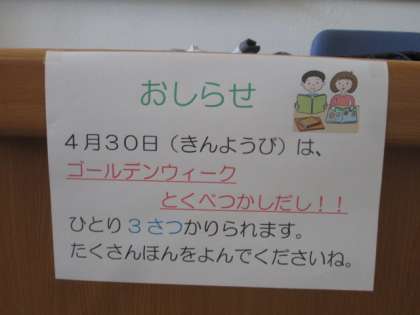 おしらせ
４月３０日（きんようび）は、
ゴールデンウィーク
とくべつかしだし！！
ひとり３さつかりられます。
たくさんほんをよんでくださいね。